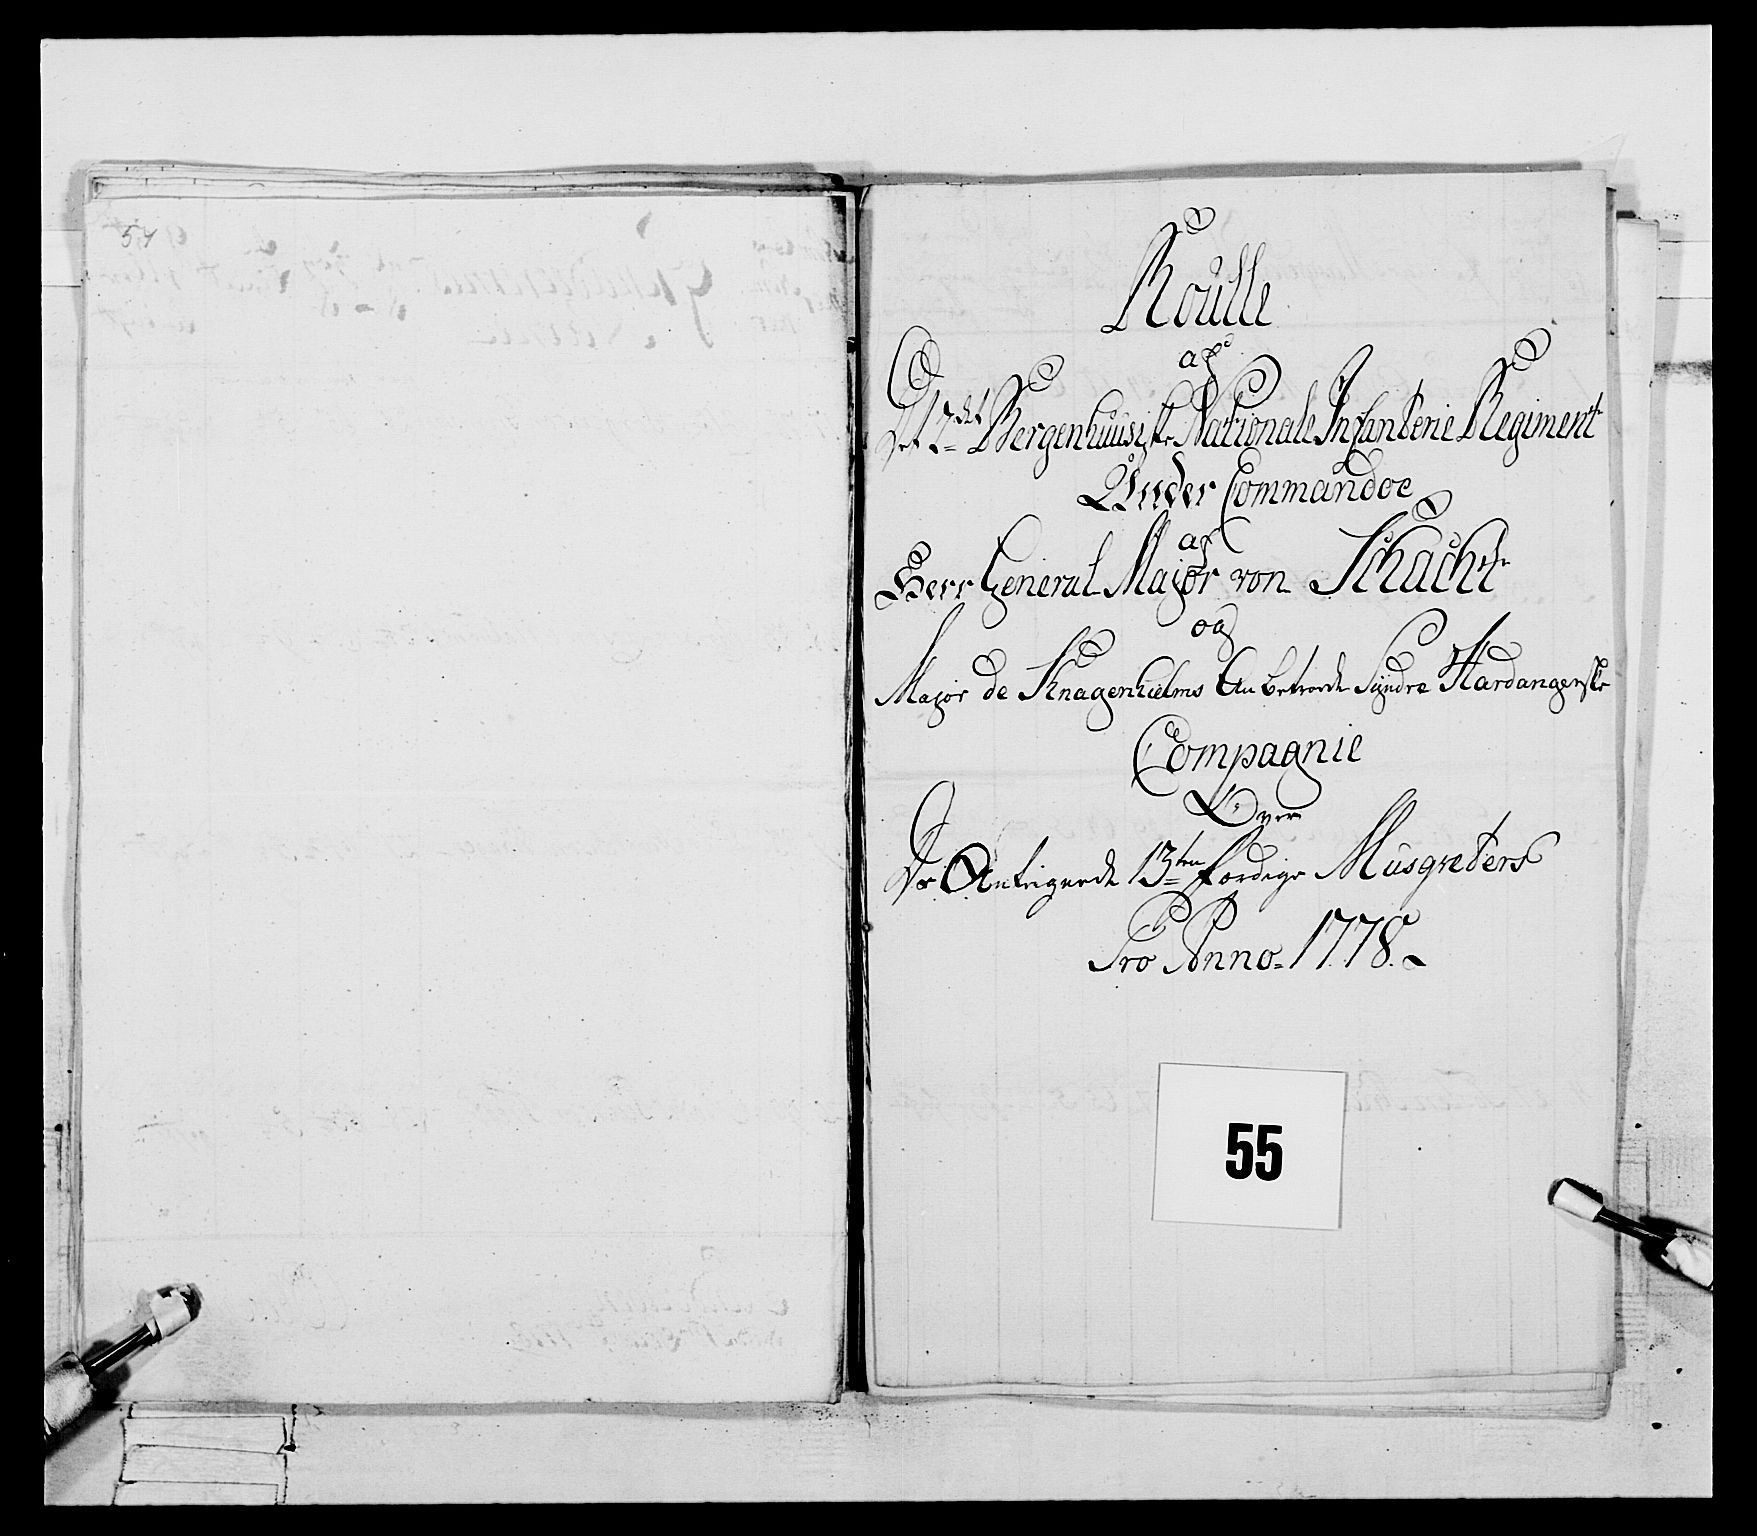 54
Roulle
af
Det 2det Bergenhuusiske Nationale Infanterie Regiment
Under Commandoe
af
Herr General Major von Schacht
og
Major de Knagenhielms Anbetroede Syndre Hardangerske
Compagnie
Over
De Antegnede 13ten færdige Musqveters
Pro Anno 1778.
55